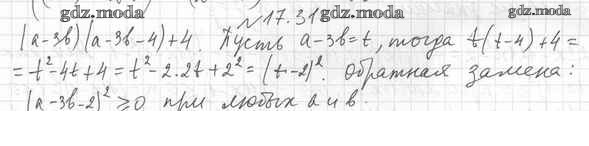 gdz.moda gdz.moda
№17.31 gdz.moda
(a-3b)(a-3b-4)+4. Пусть a-3b=t, тогда t(t-4)+4=
=t²-4t+4=t²-2.2t+2²=(t-2)². Обратная замена:
(a-3b-2)²≥0 при любых a и b.